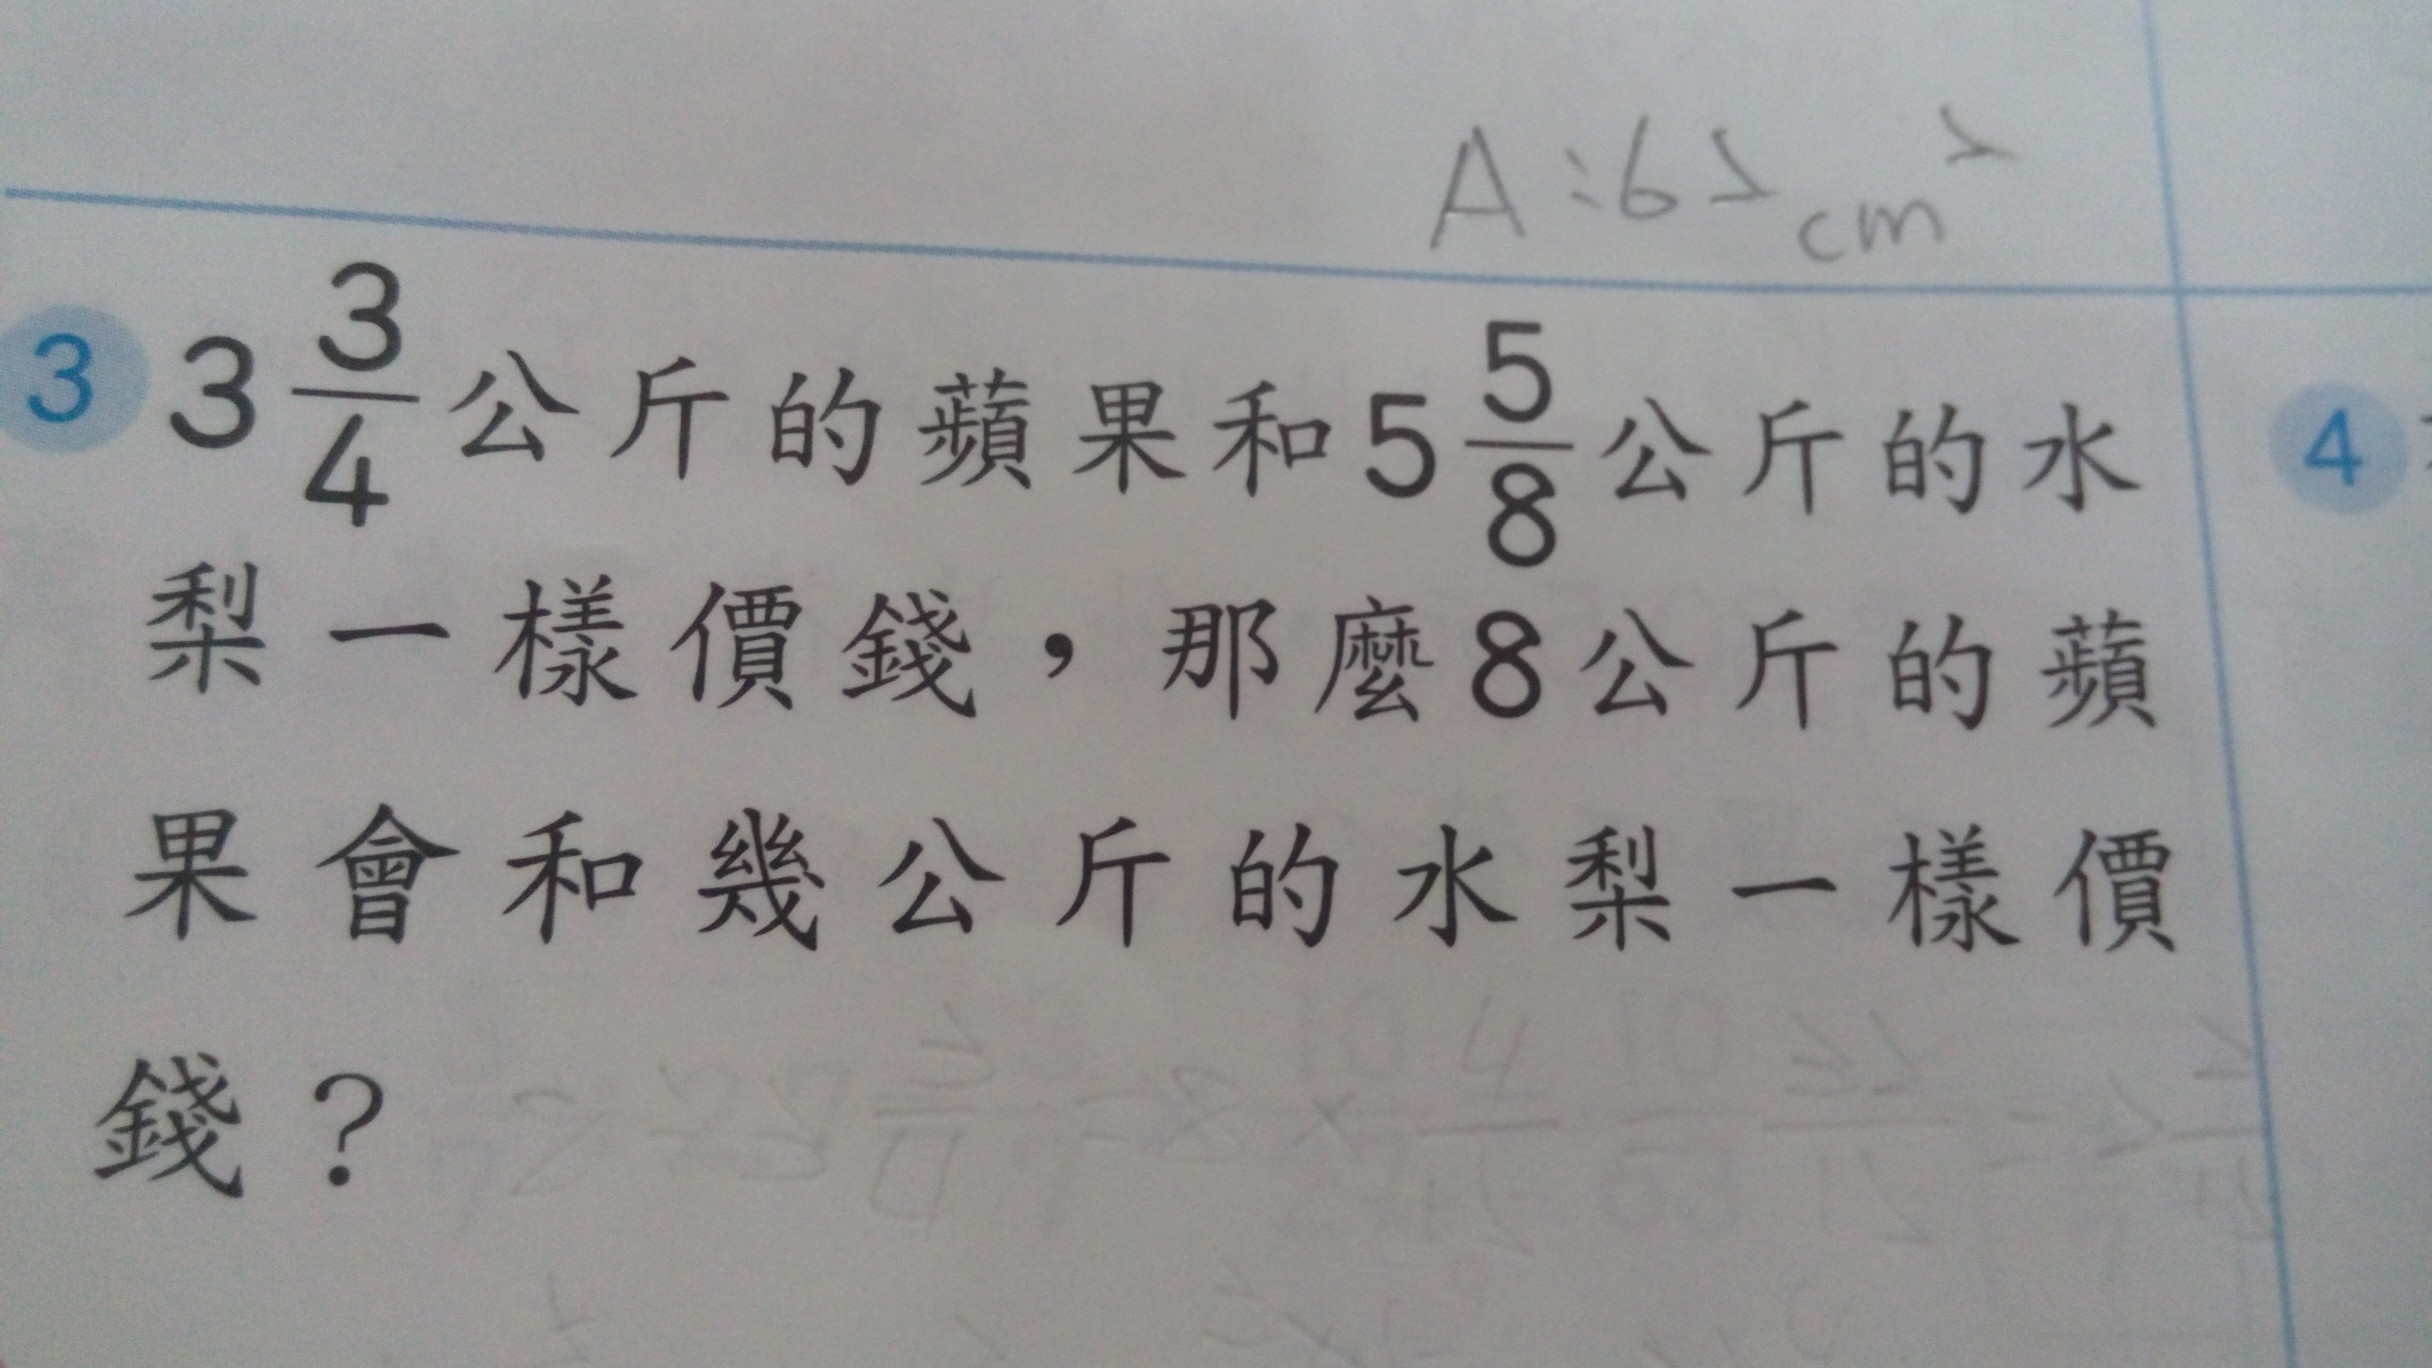 A:62cm²
3 3 3/4公斤的蘋果和5 5/8公斤的水
梨一樣價錢，那麼8公斤的蘋
果會和幾公斤的水梨一樣價
錢？
4